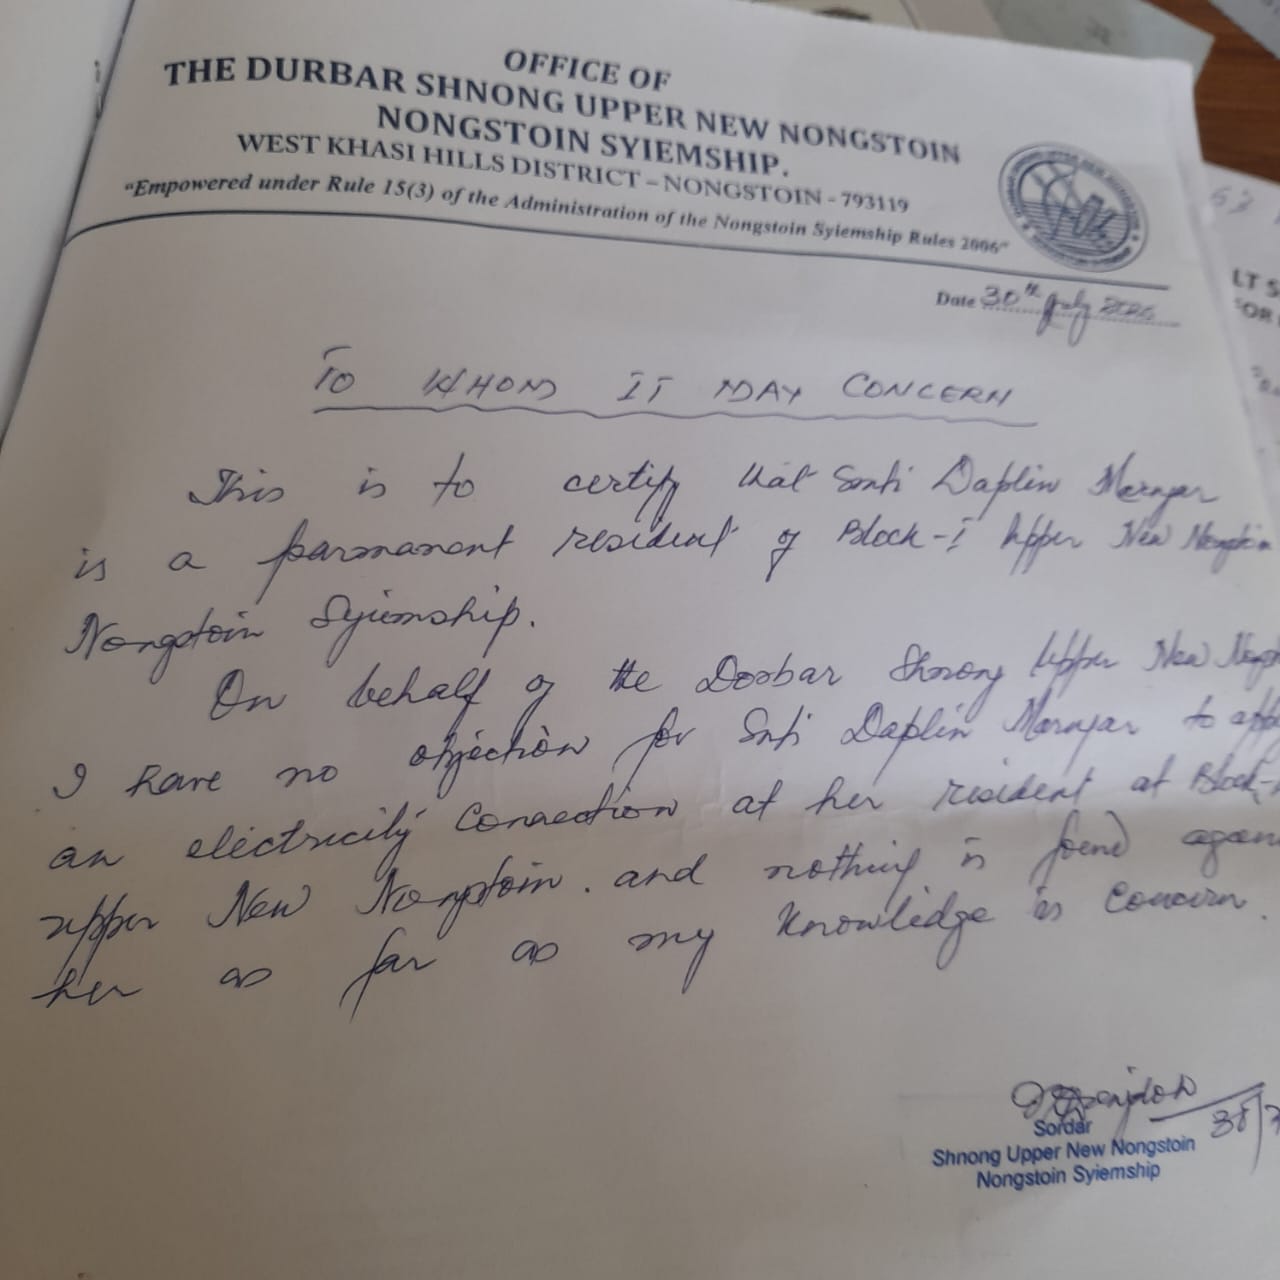 OFFICE OF
THE DURBAR SHNONG UPPER NEW NONGSTOIN
NONGSTOIN SYIEMSHIP.
WEST KHASI HILLS DISTRICT – NONGSTOIN - 793119
"Empowered under Rule 15(3) of the Administration of the Nongstoin Syiemship Rules 2006"
Date 30th July
TO WHOM IT MAY CONCERN
This is to certify that Smti Daplin Marngar
is a parmanent resident of Block-I Upper New Nongstoin
Nongstoin Syiemship.
On behalf of the Doobar Shnong Upper New
I have no objection for Smti Daplin Marngar to
an electricity Connection at her resident at Block-
upper New Nongstoin. and nothing is found
her as far as my knowledge is concern.
Sordar
Shnong Upper New Nongstoin
Nongstoin Syiemship
LT S